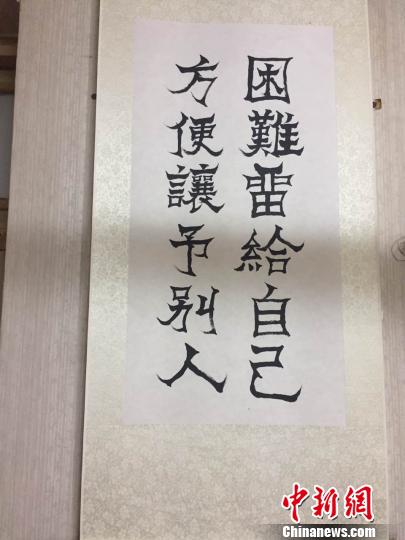 困難畱給自己
方便讓予别人
中新網
Chinanews.com